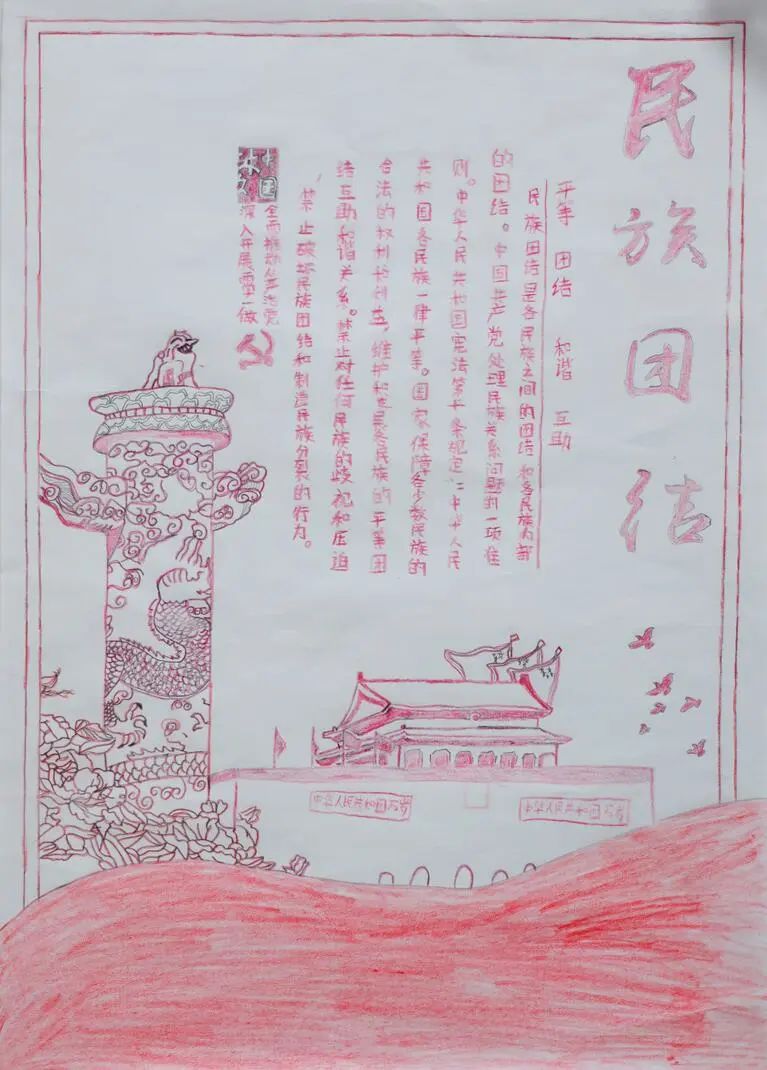 民族团结
平等 团结 和谐 互助
民族团结是各民族之间的团结和各民族内部
的团结。中国共产党处理民族关系问题的一项准
则。中华人民共和国宪法第十条规定:“中华人民
共和国各民族一律平等。国家保障各少数民族的
合法的权利和利益,维护和发展各民族的平等团
结互助和谐关系。禁止对任何民族的歧视和压迫
,禁止破坏民族团结和制造民族分裂的行为。
中国
全面推动从严治党
深入开展两学一做
中华人民共和国万岁
中华人民共和国万岁